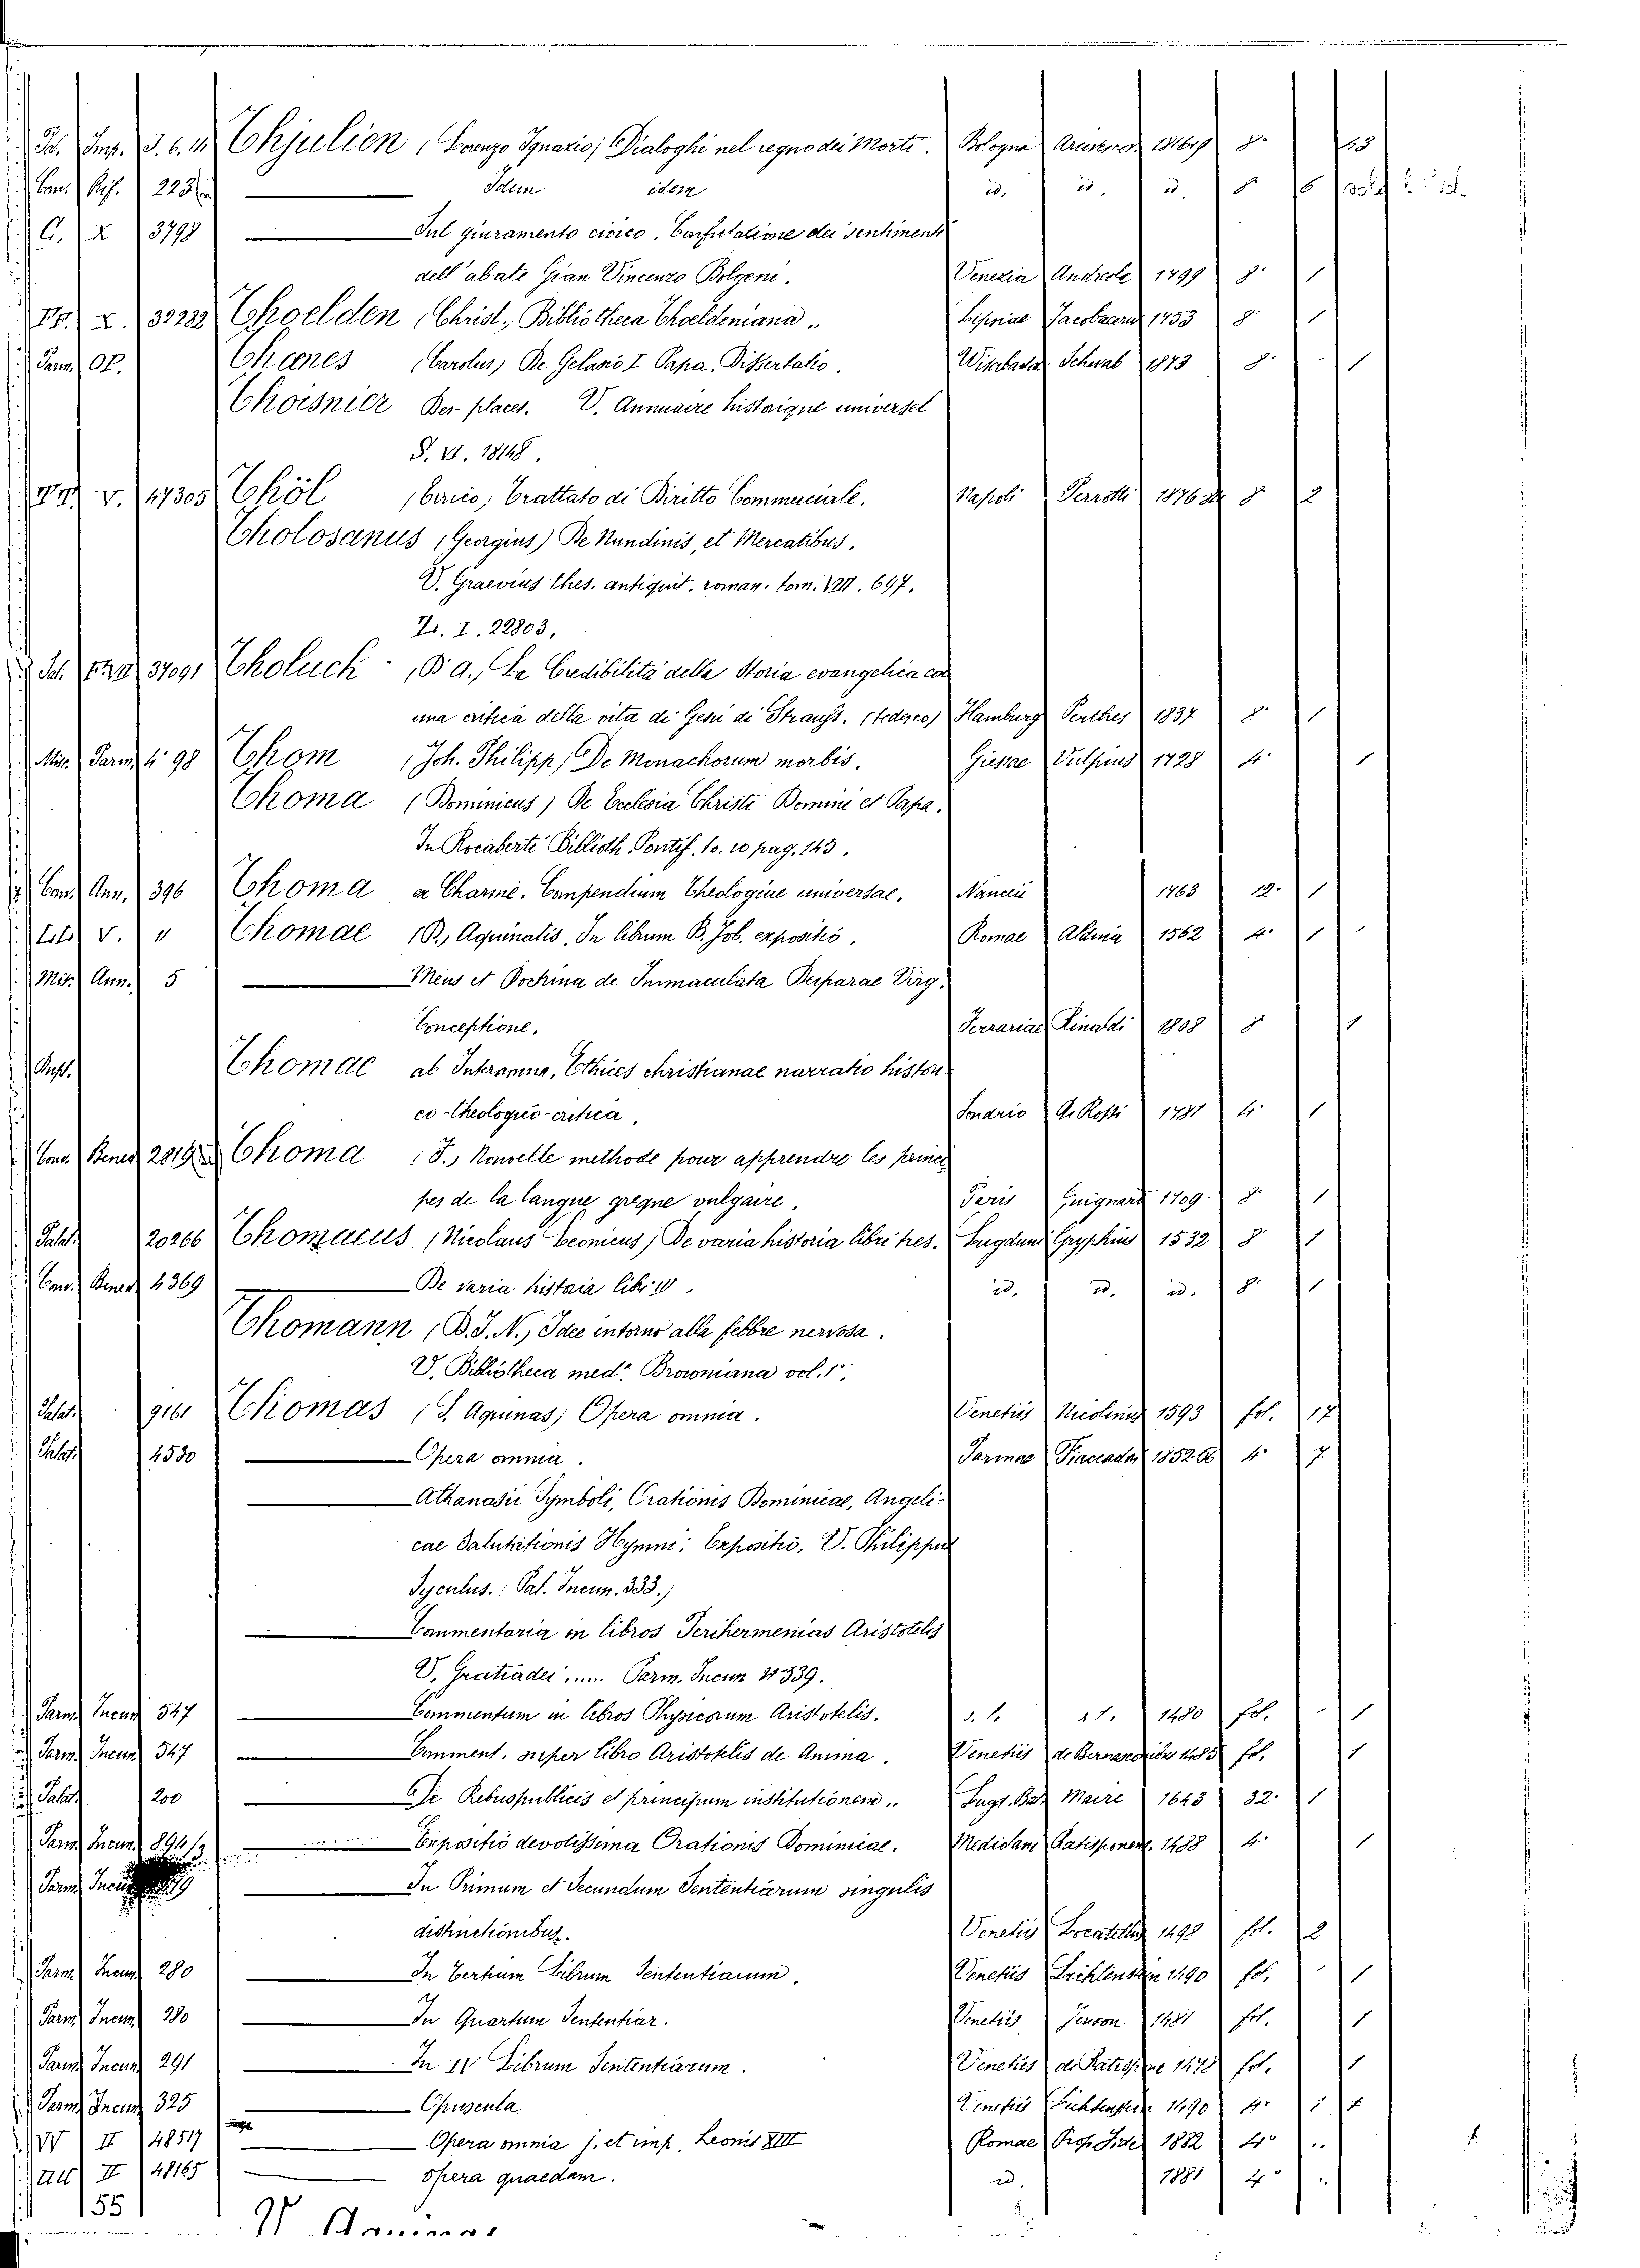 Thjulien (Lorenzo Ignazio) Dialoghi nel regno dei Morti. Bologna 8°
223 Idem idem id. id. id. 8°
C. X 3798 Sul giuramento civico. Confutazione dei sentimenti
dell'abate Gian Vincenzo Bolgeni. Venezia Andreola 1799 8° 1
X. 33282 Thoelden (Christ.) Bibliotheca Thoeldeniana. Lipsiae 1753 8° 1
Parm. OP. Thoenes (Carolus) De Gelasio I Papa. Dissertatio. Schwab 1873 8° 1
Thoisnier Des-places. V. Annuaire historique universel
S. II. 18148.
V. 47305 Thöl (Enrico) Trattato di Diritto Commerciale. Napoli Perrotti 1876 8° 2
Tholosanus (Georgius) De Nundinis, et Mercatibus.
V. Graevius thes. antiquit. roman. tom. VIII. 697.
I. 22803.
37091 Tholuck (D. A.) La Credibilità della Storia evangelica con
una critica della vita di Gesù di Strauss. (tedesco) Hamburg Perthes 1837 8° 1
Misc. Parm. 4° 98 Thom (Joh. Philipp) De Monachorum morbis. Giessae Vulpius 1728 4° 1
Thoma (Dominicus) De Ecclesia Christi Domini et Papa.
In Rocaberti Biblioth. Pontif. to. 10 pag. 145.
Conv. Ann. 396 Thoma a Charmè. Compendium Theologiae universae. Nanceii 1763 12° 1
V. " Thomae (D.) Aquinatis. In librum B. Job. expositio. Romae Aldina 1562 4° 1
Mis. Ann. 5 Mens et Doctrina de Immaculata Deiparae Virg.
Conceptione. Ferrariae Rinaldi 1808 8° 1
Thomae ab Interamna, Ethices christianae narratio histori-
co-theologico-critica. Sondrio De Rossi 1781 4° 1
Conv. Bened. 2819 Thoma (F.) Nouvelle methode pour apprendre les princi-
pes de la langue greque vulgaire. Paris Guignard 1709 8° 1
Palat. 20266 Thomaeus (Nicolaus Leonicus) De varia historia libri tres. Lugduni Gryphius 1532 8° 1
Conv. Bened. 4369 De varia historia libri III. id. id. id. 8° 1
Thomann (D. J. N.) Idee intorno alla febbre nervosa.
V. Bibliotheca med.ª Browniana vol. 1°.
Palat. 9161 Thomas (S. Aquinas) Opera omnia. Venetiis Nicolinis 1593 fol. 17
Palat. 4530 Opera omnia. Parmae Fiaccadori 1852.66 4° 7
Athanasii Symboli, Orationis Dominicae, Angeli-
cae Salutationis Hymni: Expositio. V. Philippus
Syculus. (Pal. Incun. 333.)
Commentaria in libros Perihermenias Aristotelis
V. Gratiadei ..... Parm. Incun. N° 539.
Parm. Incun. 547 Commentum in libros Physicorum Aristotelis. s. l. 1480 fol. 1
Parm. Incun. 547 Comment. super libro Aristotelis de Anima. Venetiis 1485 fol. 1
Palat. 200 De Rebuspublicis et principum institutionem. Lugd. Bat. Maire 1643 32° 1
Parm. Incun. 894/2 Expositio devotissima Orationis Dominicae. Mediolani Ratisponens. 1488 4° 1
Parm. Incun. In Primum et Secundum Sententiarum singulis
distinctionibus. Venetiis Locatellus 1498 fol. 2
Parm. Incun. 280 In Tertium Librum Sententiarum. Venetiis Lichtenstein 1490 fol. 1
Parm. Incun. 280 In Quartum Sententiar. Venetiis Jenson 1481 fol. 1
Parm. Incun. 291 In IV Librum Sententiarum. Venetiis de Ratispone 1478 fol. 1
Parm. Incun. 325 Opuscula Venetiis Lichtenstein 1490 4° 1
II 48517 Opera omnia j. et imp. Leonis XIII Romae Prop. Fide 1882 4° ..
II 48165 Opera quaedam. id. 1881 4° ..
55
V. Aquinas